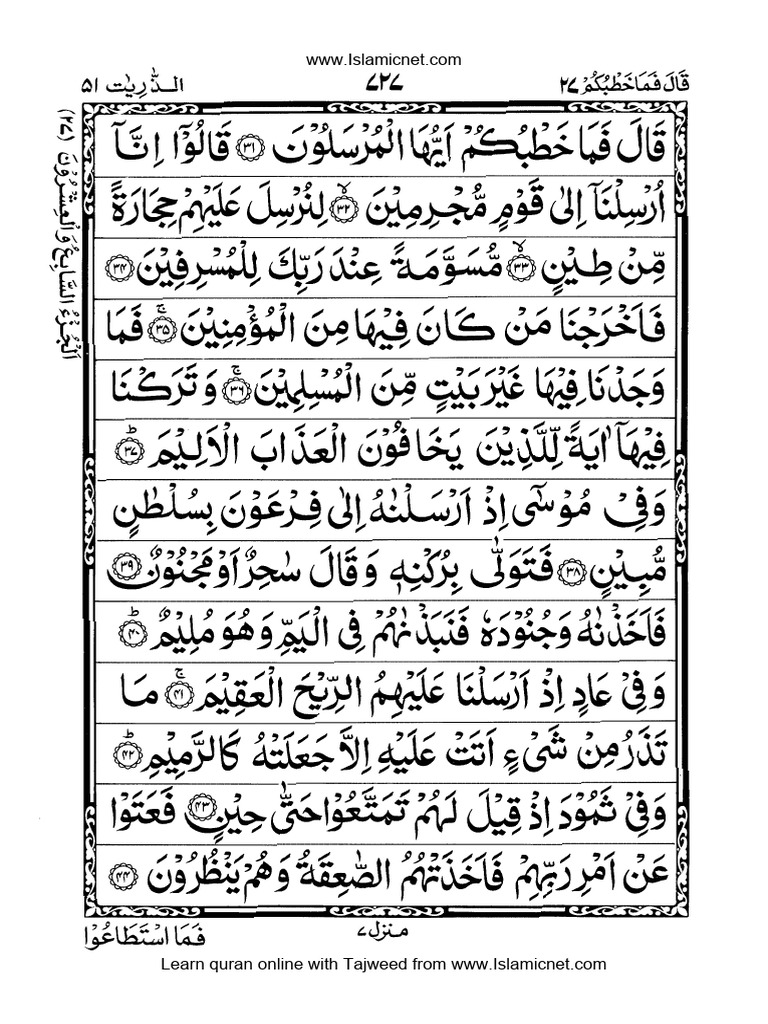 www.Islamicnet.com
قَالَ فَمَا خَطْبُكُمْ ٢٧
٧٢٧
الذّٰرِيٰت ٥١
قَالَ فَمَا خَطْبُكُمْ اَيُّهَا الْمُرْسَلُوْنَ ﴿٣١﴾ قَالُوْٓا اِنَّآ
اُرْسِلْنَآ اِلٰى قَوْمٍ مُّجْرِمِيْنَ ﴿٣٢﴾ۙ لِنُرْسِلَ عَلَيْهِمْ حِجَارَةً
مِّنْ طِيْنٍ ﴿٣٣﴾ۙ مُّسَوَّمَةً عِنْدَ رَبِّكَ لِلْمُسْرِفِيْنَ ﴿٣٤﴾
فَاَخْرَجْنَا مَنْ كَانَ فِيْهَا مِنَ الْمُؤْمِنِيْنَ ﴿٣٥﴾ۚ فَمَا
وَجَدْنَا فِيْهَا غَيْرَ بَيْتٍ مِّنَ الْمُسْلِمِيْنَ ﴿٣٦﴾ۚ وَتَرَكْنَا
فِيْهَآ اٰيَةً لِّلَّذِيْنَ يَخَافُوْنَ الْعَذَابَ الْاَلِيْمَ ﴿٣٧﴾ؕ
وَفِىْ مُوْسٰٓى اِذْ اَرْسَلْنٰهُ اِلٰى فِرْعَوْنَ بِسُلْطٰنٍ
مُّبِيْنٍ ﴿٣٨﴾ فَتَوَلّٰى بِرُكْنِهٖ وَقَالَ سٰحِرٌ اَوْ مَجْنُوْنٌ ﴿٣٩﴾
فَاَخَذْنٰهُ وَجُنُوْدَهٗ فَنَبَذْنٰهُمْ فِى الْيَمِّ وَهُوَ مُلِيْمٌ ﴿٤٠﴾ؕ
وَفِىْ عَادٍ اِذْ اَرْسَلْنَا عَلَيْهِمُ الرِّيْحَ الْعَقِيْمَ ﴿٤١﴾ۚ مَا
تَذَرُ مِنْ شَىْءٍ اَتَتْ عَلَيْهِ اِلَّا جَعَلَتْهُ كَالرَّمِيْمِ ﴿٤٢﴾ؕ
وَفِىْ ثَمُوْدَ اِذْ قِيْلَ لَهُمْ تَمَتَّعُوْا حَتّٰى حِيْنٍ ﴿٤٣﴾ فَعَتَوْا
عَنْ اَمْرِ رَبِّهِمْ فَاَخَذَتْهُمُ الصّٰعِقَةُ وَهُمْ يَنْظُرُوْنَ ﴿٤٤﴾
اَلْجُزْءُ السَّابِعُ وَالْعِشْرُوْنَ (٢٧)
منزل ٧
فَمَا اسْتَطَاعُوْا
Learn quran online with Tajweed from www.Islamicnet.com